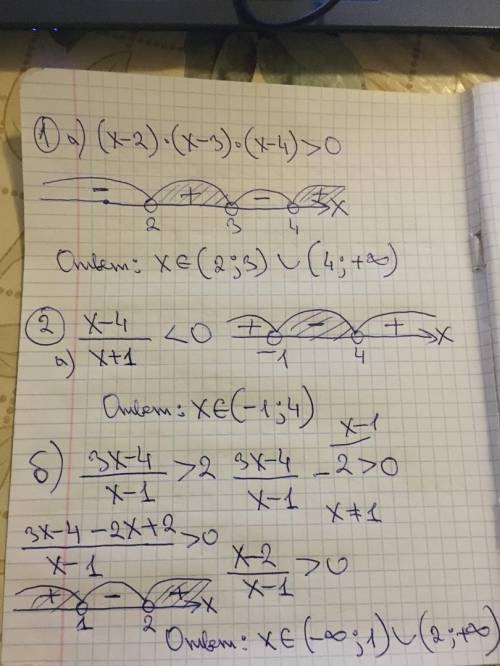 ① а) (x-2)·(x-3)·(x-4)>0
- + - + x
2 3 4
Ответ: x∈(2;3)∪(4;+∞)
② а) (x-4)/(x+1) <0
+ - + x
-1 4
Ответ: x∈(-1;4)
б) (3x-4)/(x-1) >2 (3x-4)/(x-1) - 2>0
x-1
x≠1
(3x-4-2x+2)/(x-1) >0 (x-2)/(x-1) >0
+ - + x
1 2
Ответ: x∈(-∞;1)∪(2;+∞)